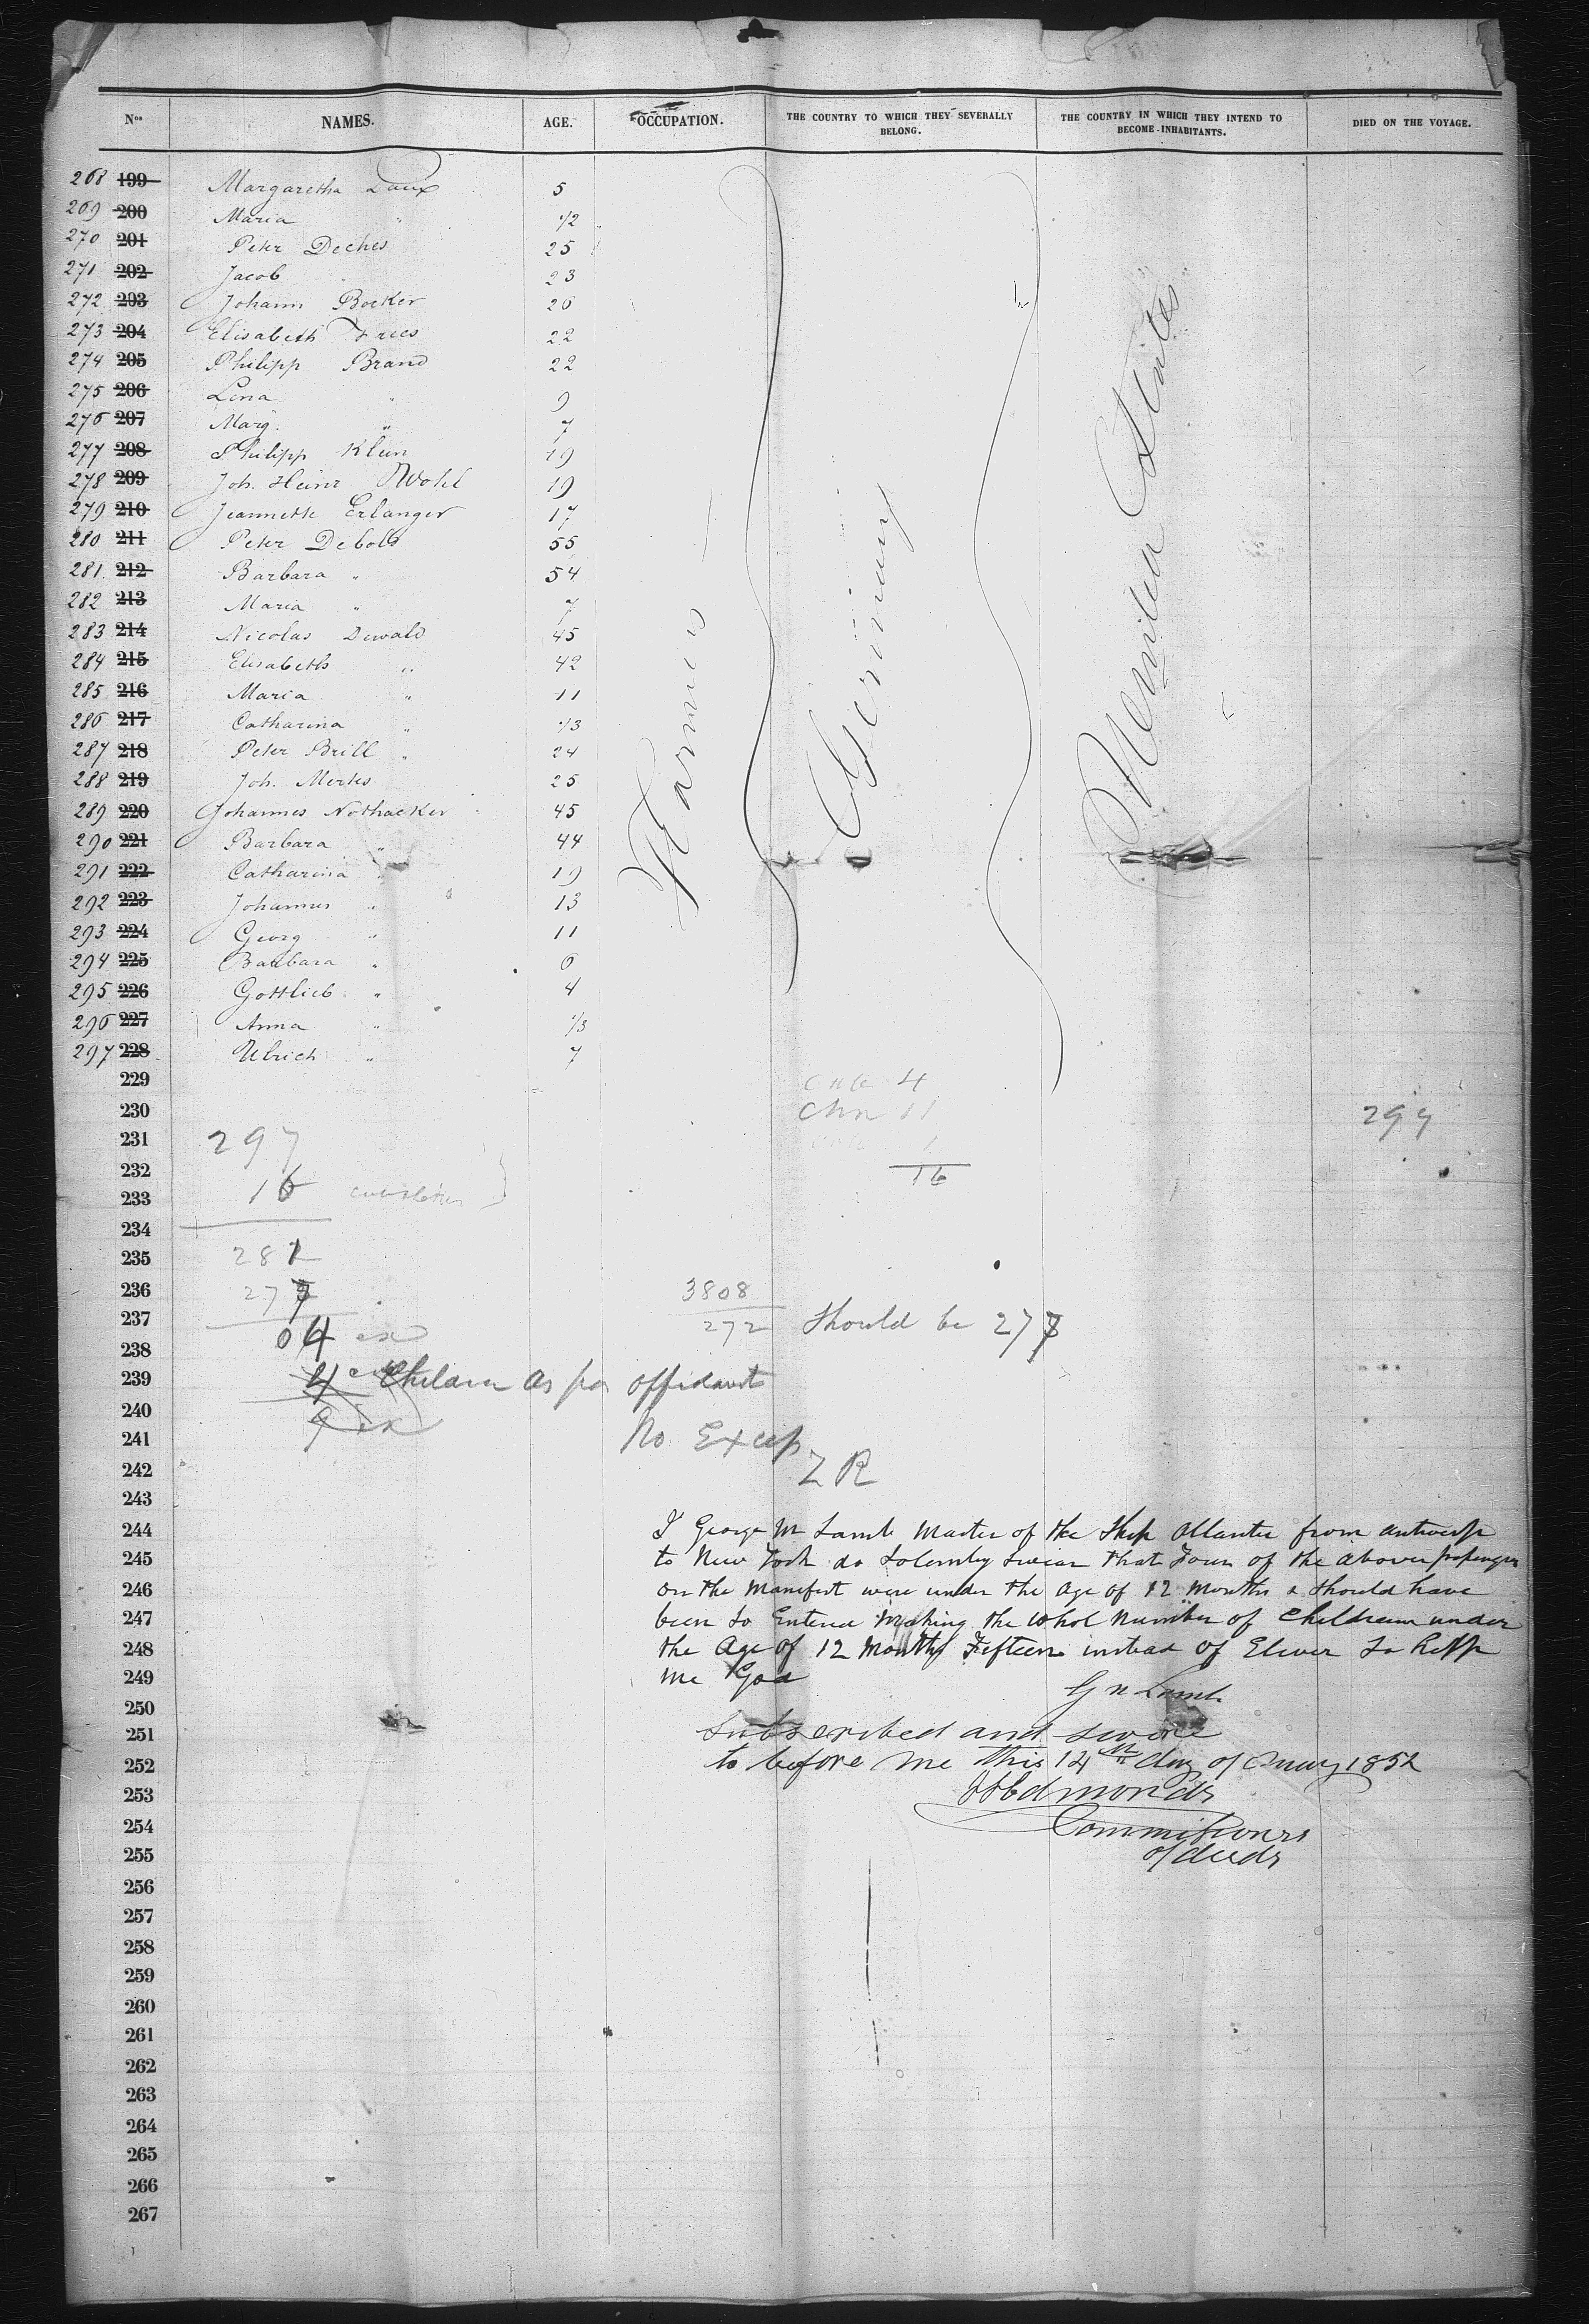 Nos NAMES. AGE. OCCUPATION. THE COUNTRY TO WHICH THEY SEVERALLY BELONG. THE COUNTRY IN WHICH THEY INTEND TO BECOME INHABITANTS. DIED ON THE VOYAGE.
268 199 Margaretha Laux 5
269 200 Maria " 1/2
270 201 Peter Deches 25
271 202 Jacob " 23
272 203 Johann Becker 26
273 204 Elisabeth Frees 22
274 205 Philipp Brand 22
275 206 Lina " 9
276 207 Marg. " 7
277 208 Philipp Klein 19
278 209 Joh. Heinr Wohl 19
279 210 Jeannette Erlanger 17
280 211 Peter Debold 55
281 212 Barbara " 54
282 213 Maria " 7
283 214 Nicolas Dewald 45
284 215 Elisabeth " 42
285 216 Maria " 11
286 217 Catharina " 1/3
287 218 Peter Brill " 24
288 219 Joh. Merks 25
289 220 Johannes Nothacker 45
290 221 Barbara " 44
291 222 Catharina " 19
292 223 Johannes " 13
293 224 Georg " 11
294 225 Barbara " 6
295 226 Gottlieb " 4
296 227 Anna " 1/3
297 228 Ulrich " 7
Farmers
Germany
United States
229 4
230 Chn 11 297
231 297 1
232 16
233 16
234
235 281
236 277 3808
237 272 Should be 277
238 04 ex
239 4 Children as per affidavit
240 ex
241 No Excep
242 Z R
243
244 I George W Lamb Master of the Ship Atlantic from Antwerp
245 to New York do Solemnly swear that Four of the above passengers
246 on the Manifest were under the Age of 12 Months & should have
247 been so Entered Making the whol Number of Children under
248 the Age of 12 Months Fifteen instead of Eleven So help
249 me God
250 G W Lamb
251 Subscribed and swore
252 to before me this 14th day of May 1852
253 Edmonds
254 Commissioners
255 of deeds
256
257
258
259
260
261
262
263
264
265
266
267